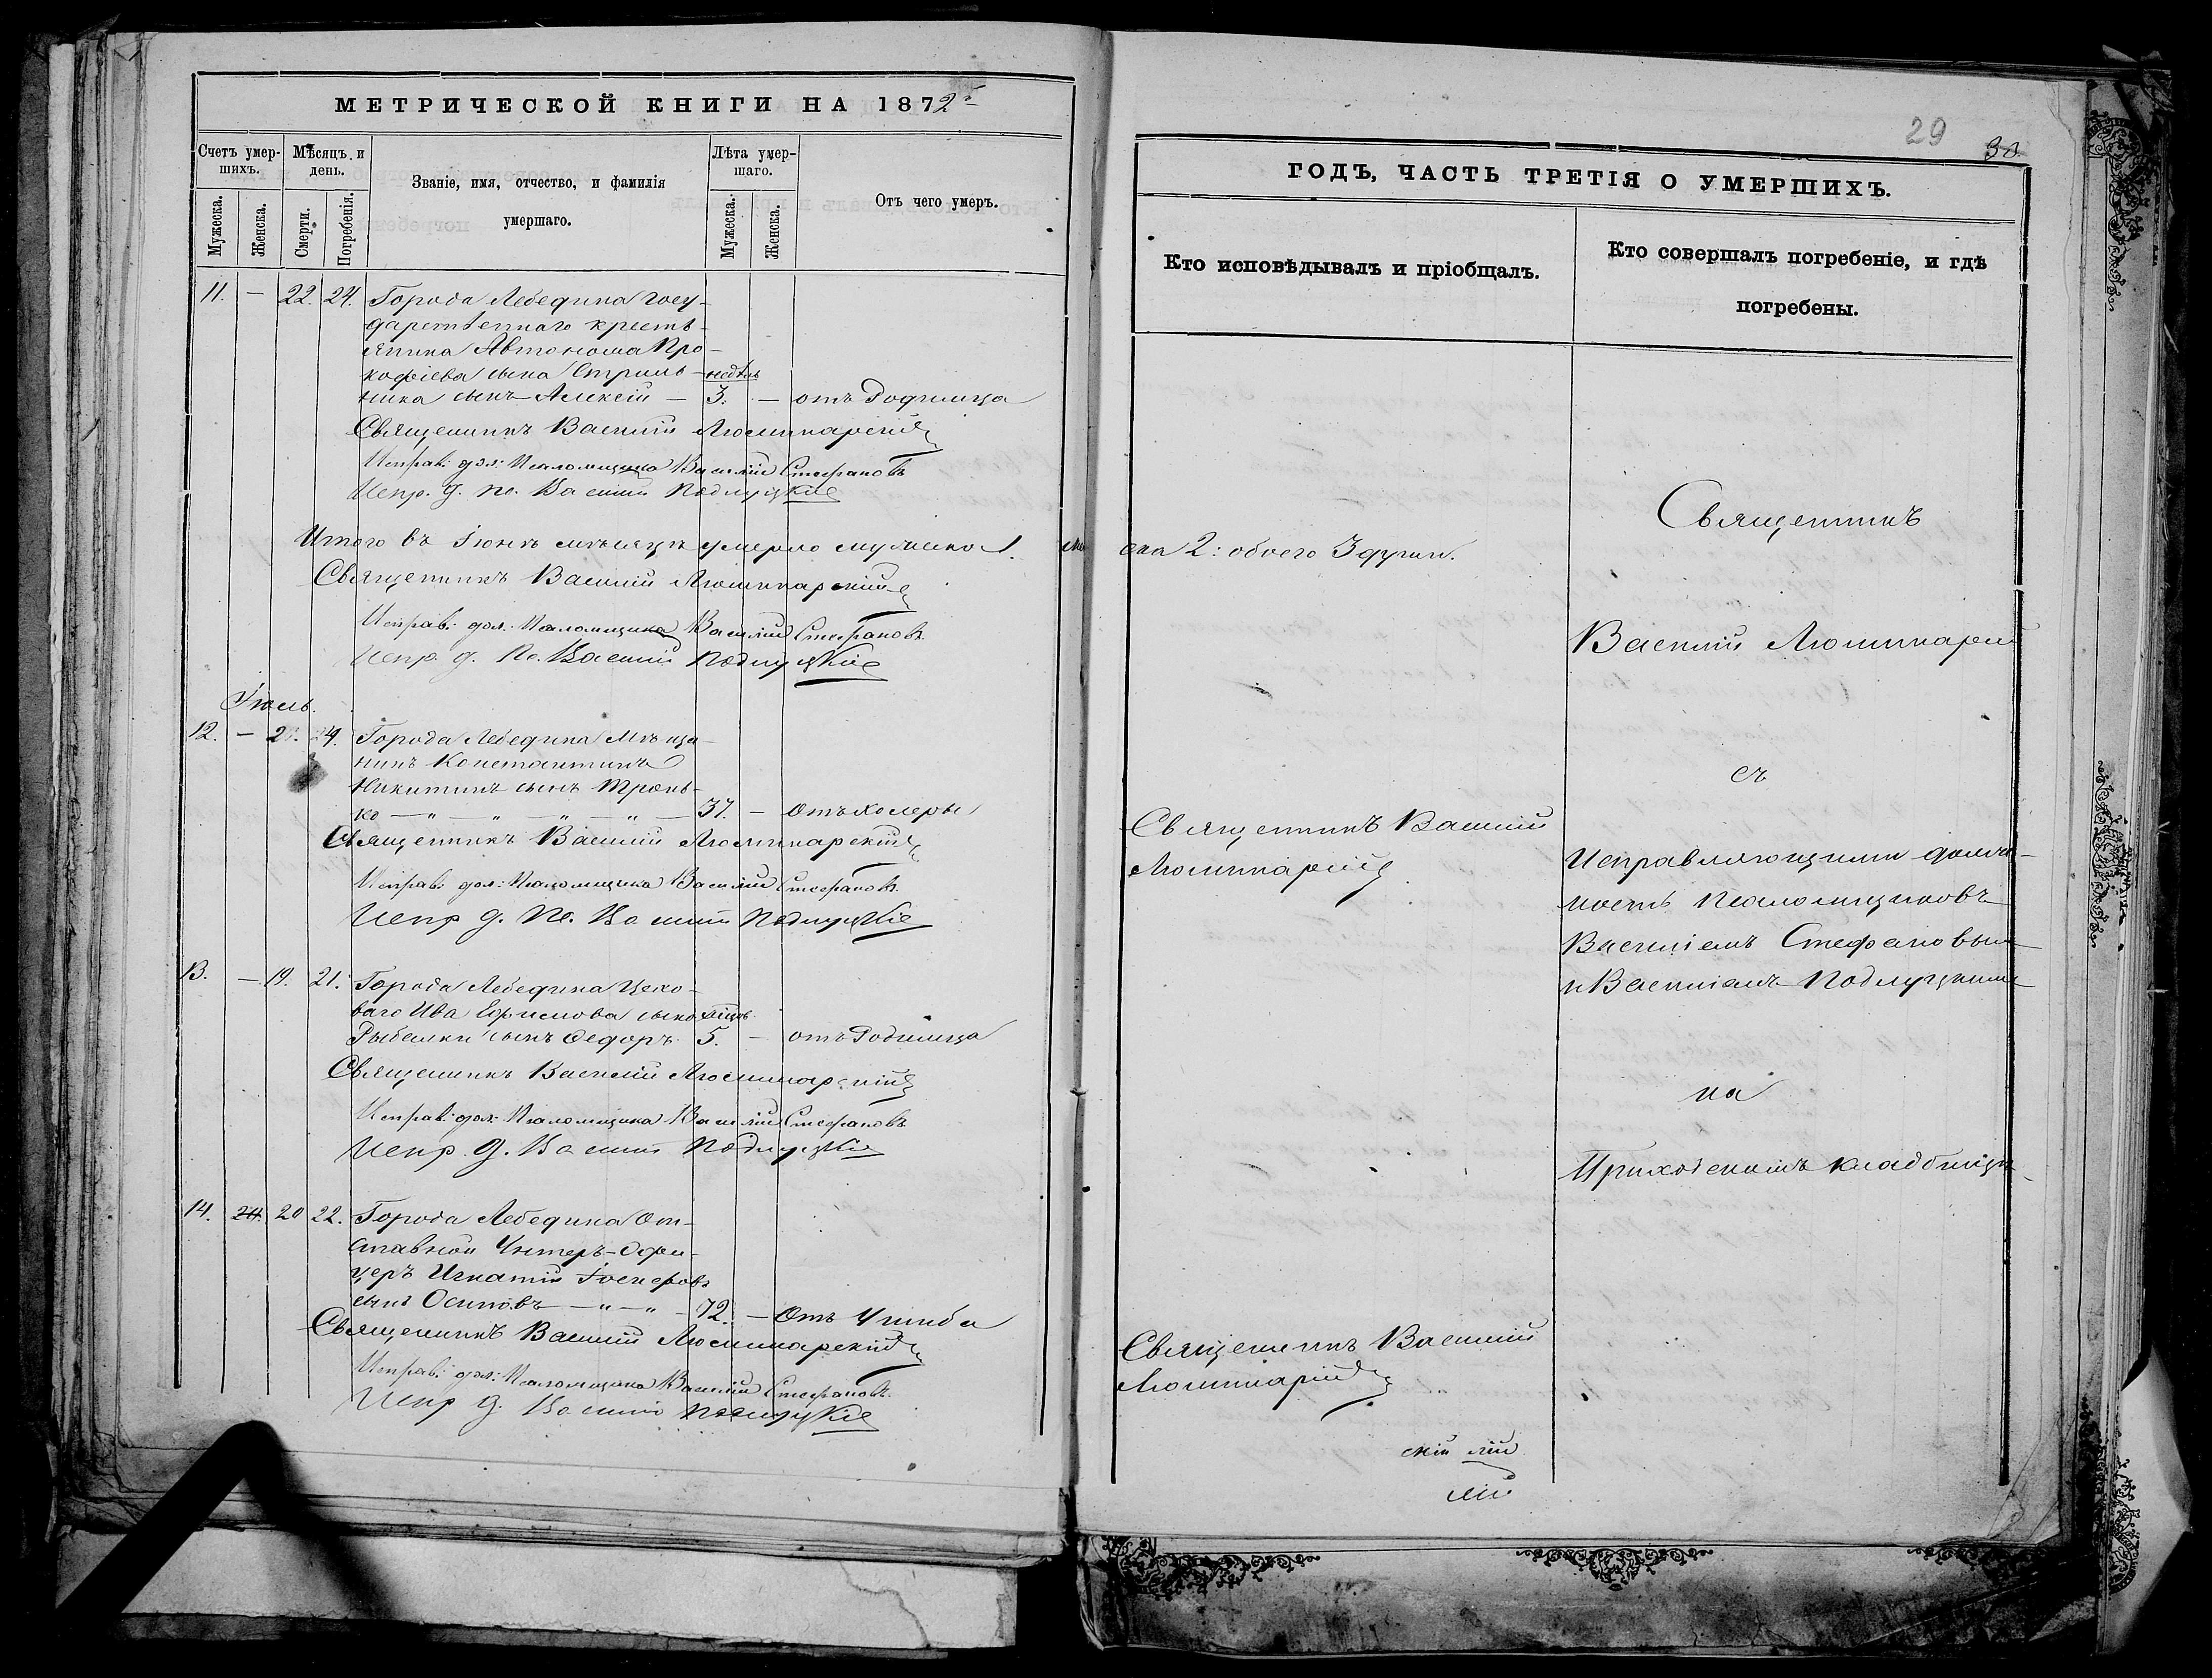 МЕТРИЧЕСКОЙ КНИГИ НА 1872й
Счетъ умер-
шихъ.
Мѣсяцъ и
день.
Званіе, имя, отчество, и фамилія
умершаго.
Лѣта умер-
шаго.
Отъ чего умеръ.
Мужеска.
Женска.
Смерти.
Погребенія.
Мужеска.
Женска.
11. — 22. 24. Города Лебедина госу-
дарственнаго кресть-
янина Автонома Про-
кофіева сына Стриль- недѣль
ника сынъ Алексій — 3. — отъ Родимца
Священникъ Василій Люминарскій
Исправ: дол: Псаломщика Василій Стефановъ
Испр. д. Пс. Василій Подлуцкій
Итого въ Іюнѣ мѣсяцѣ умерло мужеска 1.
Священникъ Василій Люминарскій
Исправ: дол: Псаломщика Василій Стефановъ
Испр. д. Пс. Василій Подлуцкій
Іюль.
12. — 2 4. Города Лебедина Мѣща-
нинъ Константинъ
Никитинъ сынъ
ко — " — " — " — " — 37. — Отъ холеры
Священникъ Василій Люминарскій
Исправ: дол: Псаломщика Василій Стефановъ
Испр д. Пс. Василій Подлуцкій
13. — 19. 21. Города Лебедина Цехо-
ваго Ива Ефимова сына мѣсяц.
Рыбалки сынъ Ѳедоръ 5. — отъ Родимца
Священникъ Василій Люминарскій
Исправ: дол: Псаломщика Василій Стефановъ
Испр. д. Василій Подлуцкій
14. 20 22. Города Лебедина От-
ставной Унтеръ-Офи-
церъ Игнатій Іосифовъ
сынъ Осиповъ — " — " — 72. — Отъ Ушиба
Священникъ Василій Люминарскій
Исправ: дол: Псаломщика Василій Стефановъ
Испр д. Василій Подлуцкій
29
30
ГОДЪ, ЧАСТЬ ТРЕТІЯ О УМЕРШИХЪ.
Кто исповѣдывалъ и пріобщалъ.
Кто совершалъ погребеніе, и гдѣ
погребены.
ска 2: обоего 3 души.
Священникъ
Василій Люминарскій
съ
Священникъ Василій
Люминарскій
Исправляющими долж-
ность Псаломщиковъ
Василіемъ Стефановымъ
и Василіемъ Подлуцкимъ
на
Приходскомъ кладбищѣ
Священникъ Василій
Люминарскій